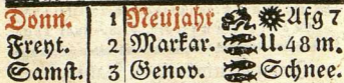 Donn. 1 Neujahr Afg 7
Freyt. 2 Markar. U. 48 m.
Samst. 3 Genov. Schnee